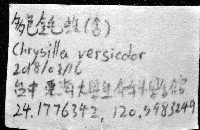 多色金毛蛛(含)
Chrysilla versicolor
2018/03/16
台中 東海大學生命科學系館
24.1776342, 120.5983249